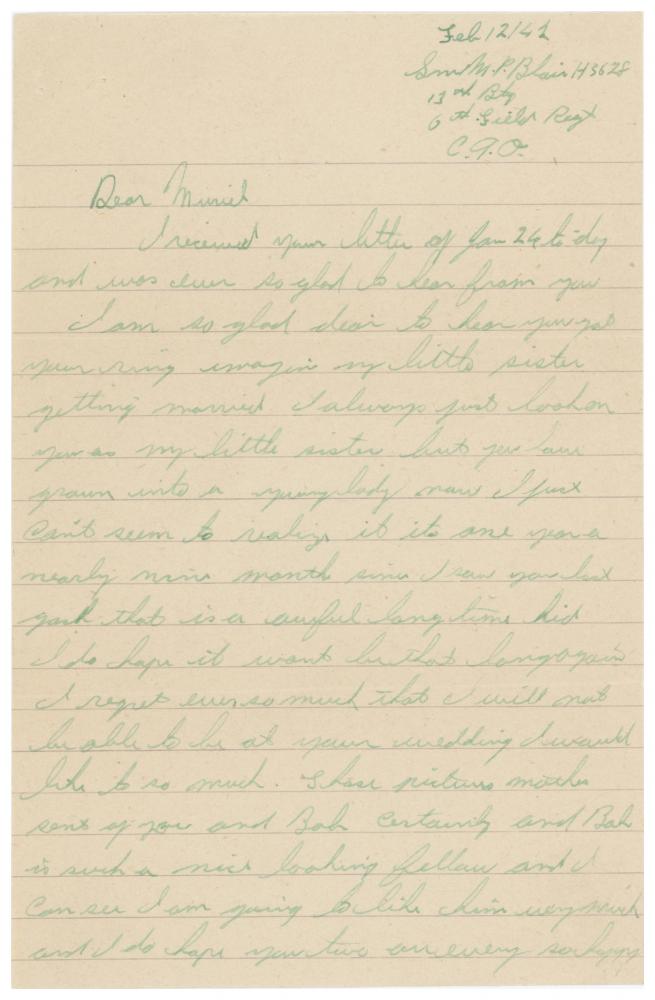 Feb 12/42
Gnr M.P. Blair H3628
13th Bty
6th Field Regt
C.A.O.
Dear Muriel
I received your letter of Jan 24 to-day
and was ever so glad to hear from you
I am so glad dear to hear you got
your ring imagin my little sister
getting married I always just look on
you as my little sister but you have
grown into a young lady now I just
Can't seem to realize it its one year a
nearly nine month since I saw you last
gosh that is a awful long time kid
I do hope it wont be that long again
I regret ever so much that I will not
be able to be at your wedding I would
like to so much. Those pictures mother
sent of you and Bob certainly and Bob
is such a nice looking fellow and I
Can see I am going to like him very much
and I do hope you two are every so happy